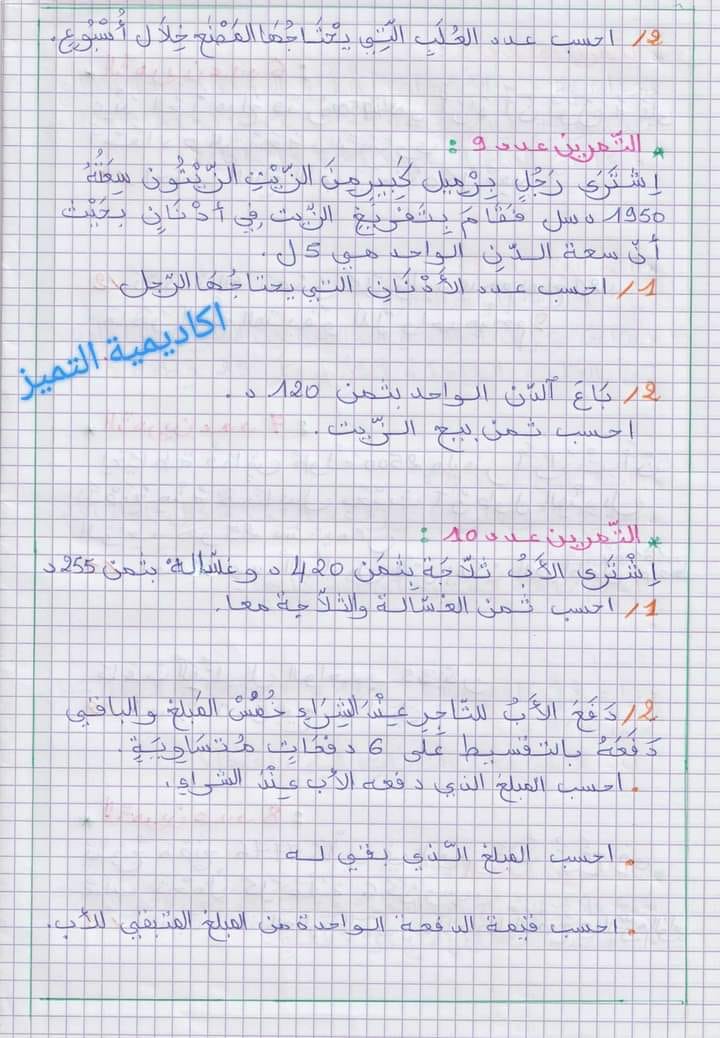 2/ احسب عدد العُلَبِ الَّتِي يَحْتَاجُهَا المَصْنَعُ خِلَالَ أُسْبُوعٍ.
* التّمرين عدد 9 :
اِشْتَرَى رَجُلٌ بِرْمِيل كَبِير مِنَ الزَّيْتِ الزَّيْتُون سِعَتُهُ
1950 دسل فَقَامَ بِتَفْرِيغِ الزّيت فِي أدْنَانٍ بِحَيْث
أنّ سعة الدّن الواحد هي 5ل.
1/ احسب عدد الأَدْنَانِ التي يحتاجُهَا الرّجل
اكاديمية التميز
2/ بَاعَ الدّن الواحد بثمن 120 د.
احسب ثمن بيع الزّيت.
* التّمرين عدد 10 :
اِشْتَرَى الأَبُ ثَلّاجَةً بِثَمَن 420 د و غسّالة بثمن 255 د
1/ احسب ثمن الغسّالة والثلاجة معا.
2/ دَفَعَ الأَبُ للتّاجِرِ عِنْدَ الشِرَاءِ خُمُسُ المَبلغ والباقي
دَفَعَهُ بالتقسيط عَلَى 6 دفعَاتٍ مُتَسَاوِيَةٍ.
• احسب المبلغ الذي دفعه الأب عِنْدَ الشراء.
• احسب المبلغ الّذي بقي له
• احسب قيمة الدفعة الواحدة من المبلغ المتبقي للأب.